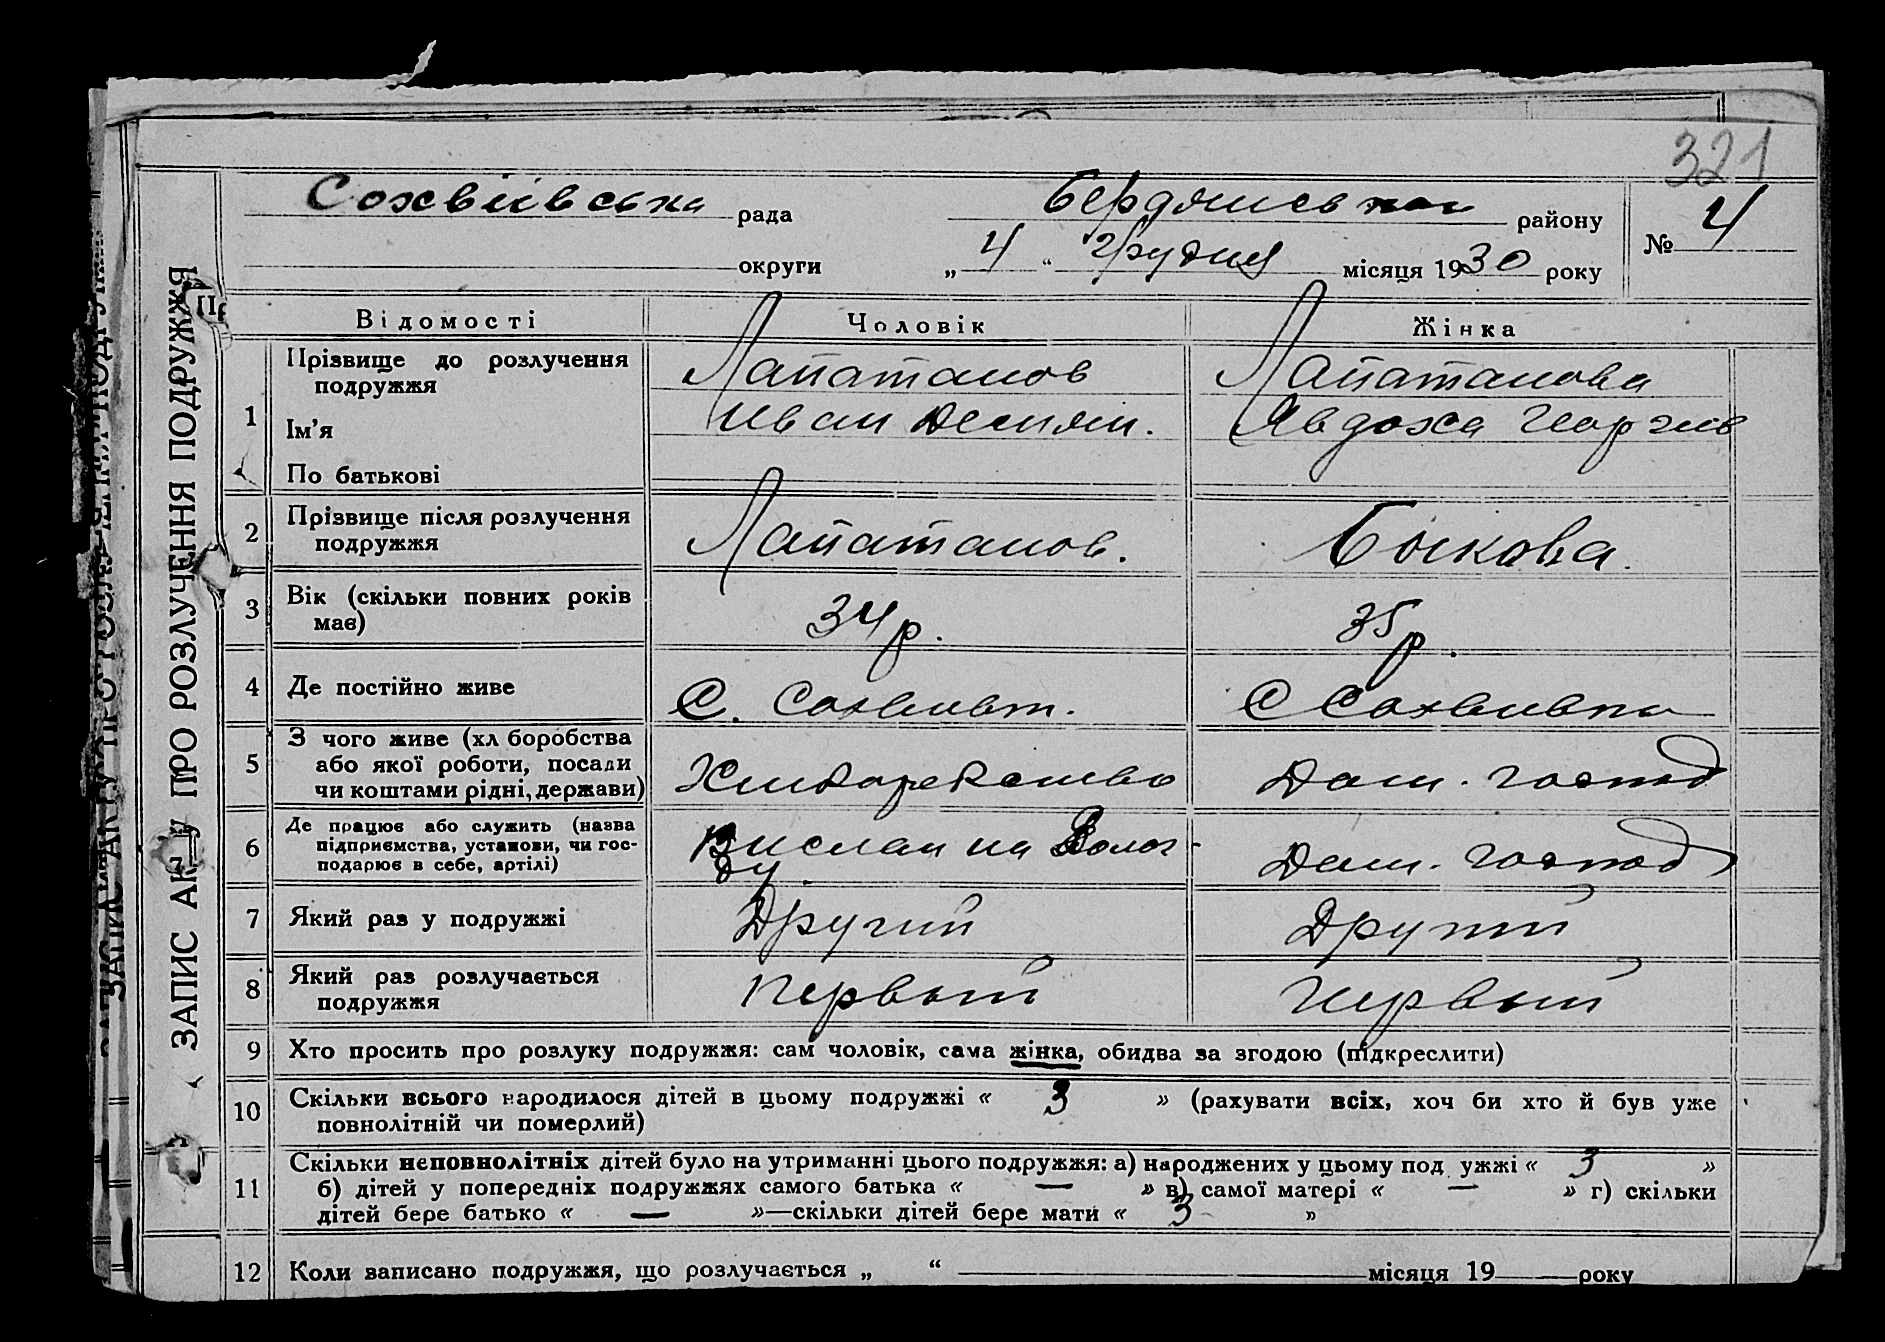 321
Сохвиівська рада Бердянськ району № 4
округи „ 4 “ грудня місяця 1930 року
ЗАПИС АКТУ ПРО РОЗЛУЧЕННЯ ПОДРУЖЖЯ
Відомості Чоловік Жінка
1 Прізвище до розлучення подружжя Лапатанов Лапатанова
Ім'я Иван Демян. Явдоха Георгиев
По батькові
2 Прізвище після розлучення подружжя Лапатанов. Быкова.
3 Вік (скільки повних років має) 34 р. 35 р.
4 Де постійно живе С. Сохвиевк. С Сохвиевка
5 З чого живе (хл боробства або якої роботи, посади чи коштами рідні, держави) Дом. господ
6 Де працює або служить (назва підприємства, установи, чи господарює в себе, артілі) Вислан на Вологду Дом. господ
7 Який раз у подружжі Другий Другий
8 Який раз розлучається подружжя Первый Первый
9 Хто просить про розлуку подружжя: сам чоловік, сама жінка, обидва за згодою (підкреслити)
10 Скільки всього народилося дітей в цьому подружжі « 3 » (рахувати всіх, хоч би хто й був уже
повнолітній чи померлий)
11 Скільки неповнолітніх дітей було на утриманні цього подружжя: а) народжених у цьому под ужжі « 3 »
б) дітей у попередніх подружжях самого батька « — » в) самої матері « — » г) скільки
дітей бере батько « — »—скільки дітей бере мати « 3 »
12 Коли записано подружжя, що розлучається „ “ місяця 19 року